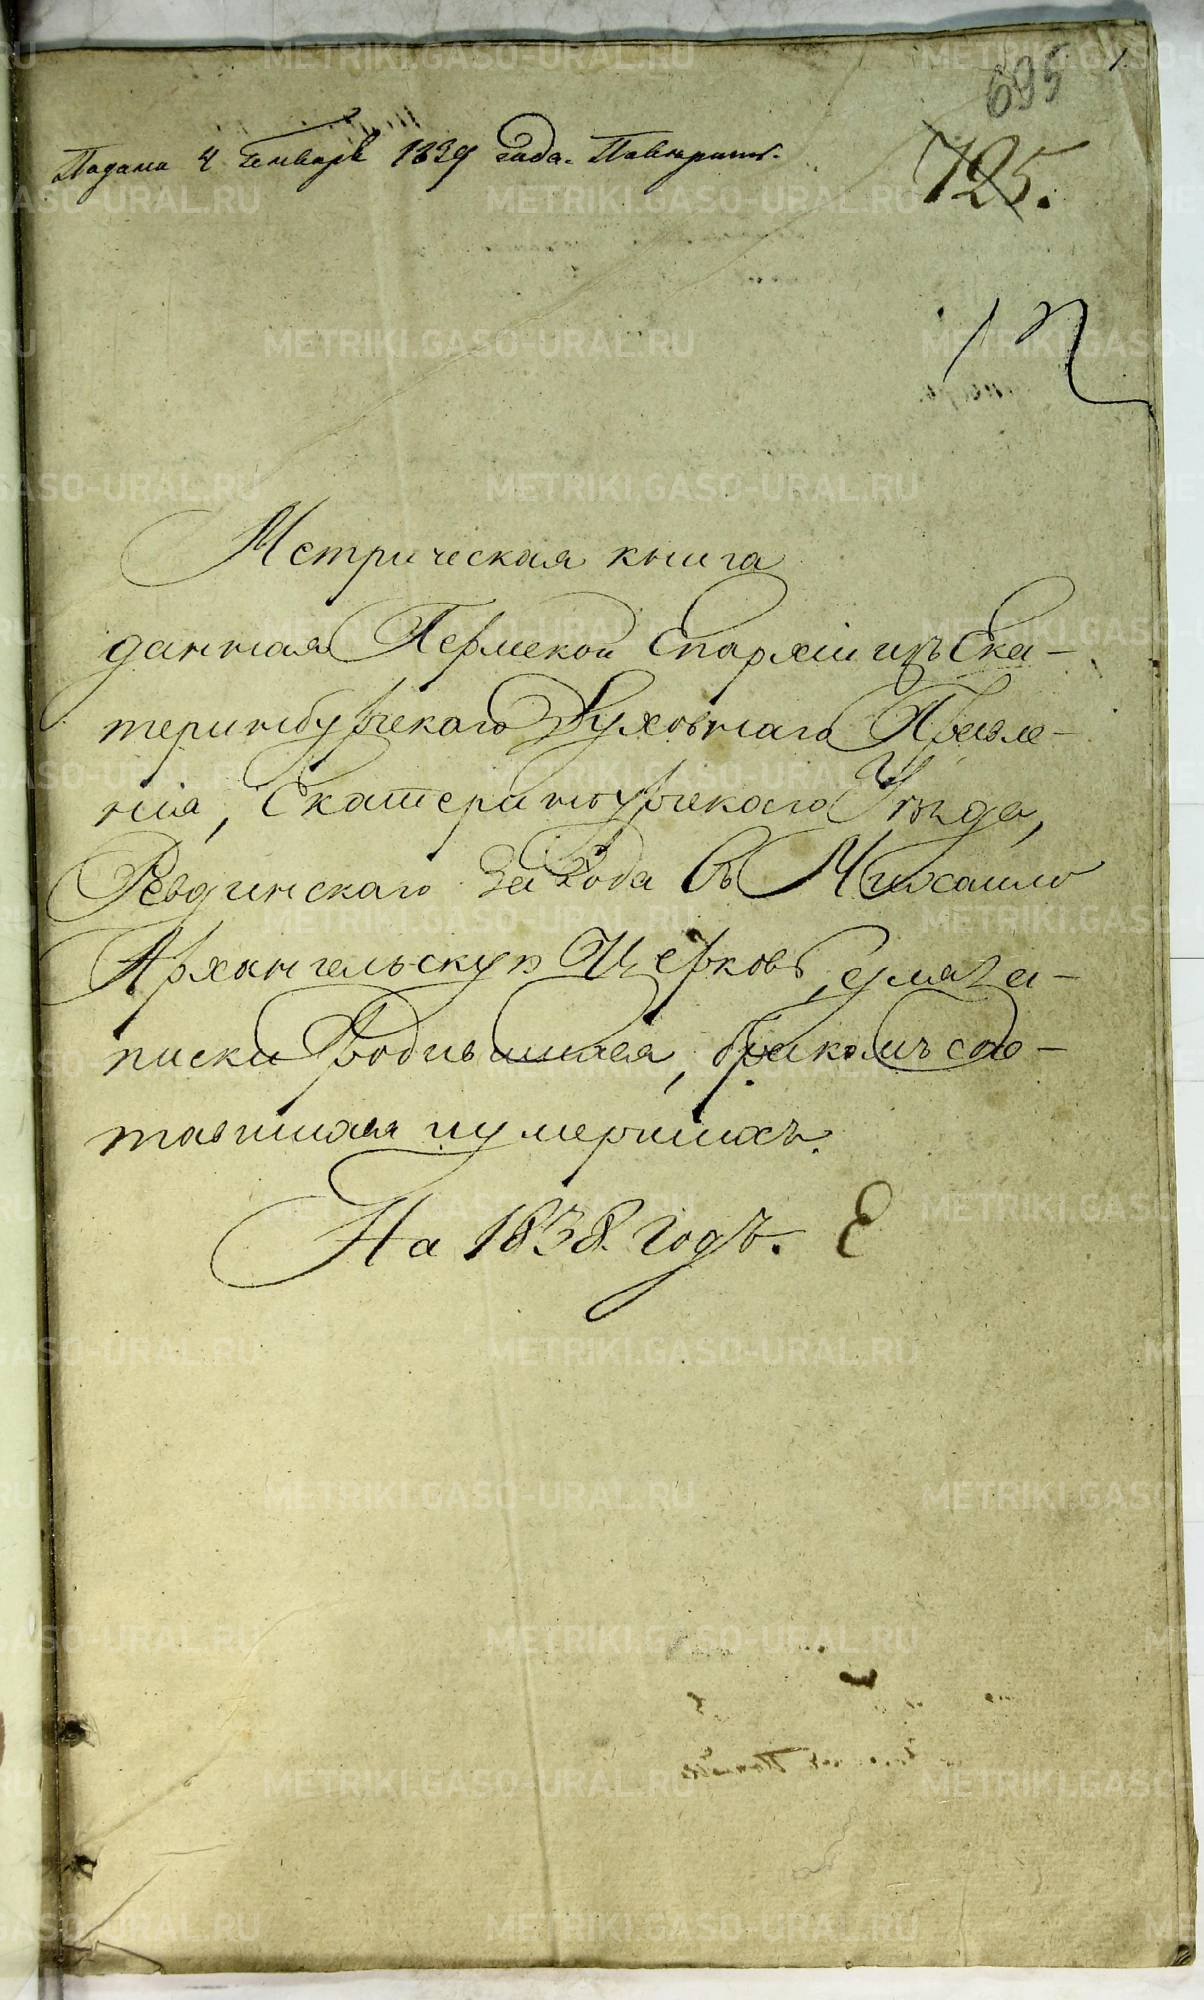 695
1
Подана 4 Генваря 1839 года.
725.
Метрическая книга
данная Пермской Епархіи изъ Ека-
теринбургскаго Духовнаго Правле-
нія, Екатеринбургскаго Уезда,
Ревдинскаго завода въ Михаило
Архангельскую Церковь, для за-
писки Родившихся, бракомъ соче-
тавшихся и умершихъ.
На 1838 годъ.